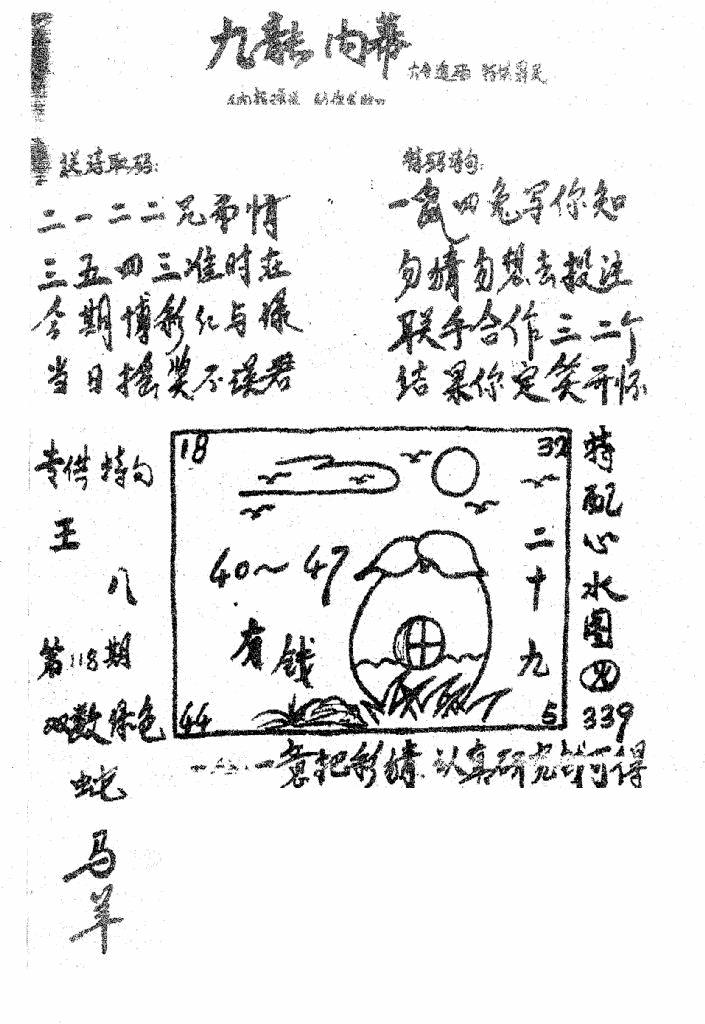 九龍内幕
送诗取码:
二一二二兄弟情
三五四三准时在
今期博彩红与绿
当日摇奖不误君
特码诗句:
一 四兔写你知
勿猜勿想去投注
联手合作三二个
结果你定笑开怀
专供特句
王
八
第118期
双数绿色
蛇
马
羊
18
32
40~47
有钱
二十九
44
5
特配心水图
339
一意把彩猜 认真研究 可得